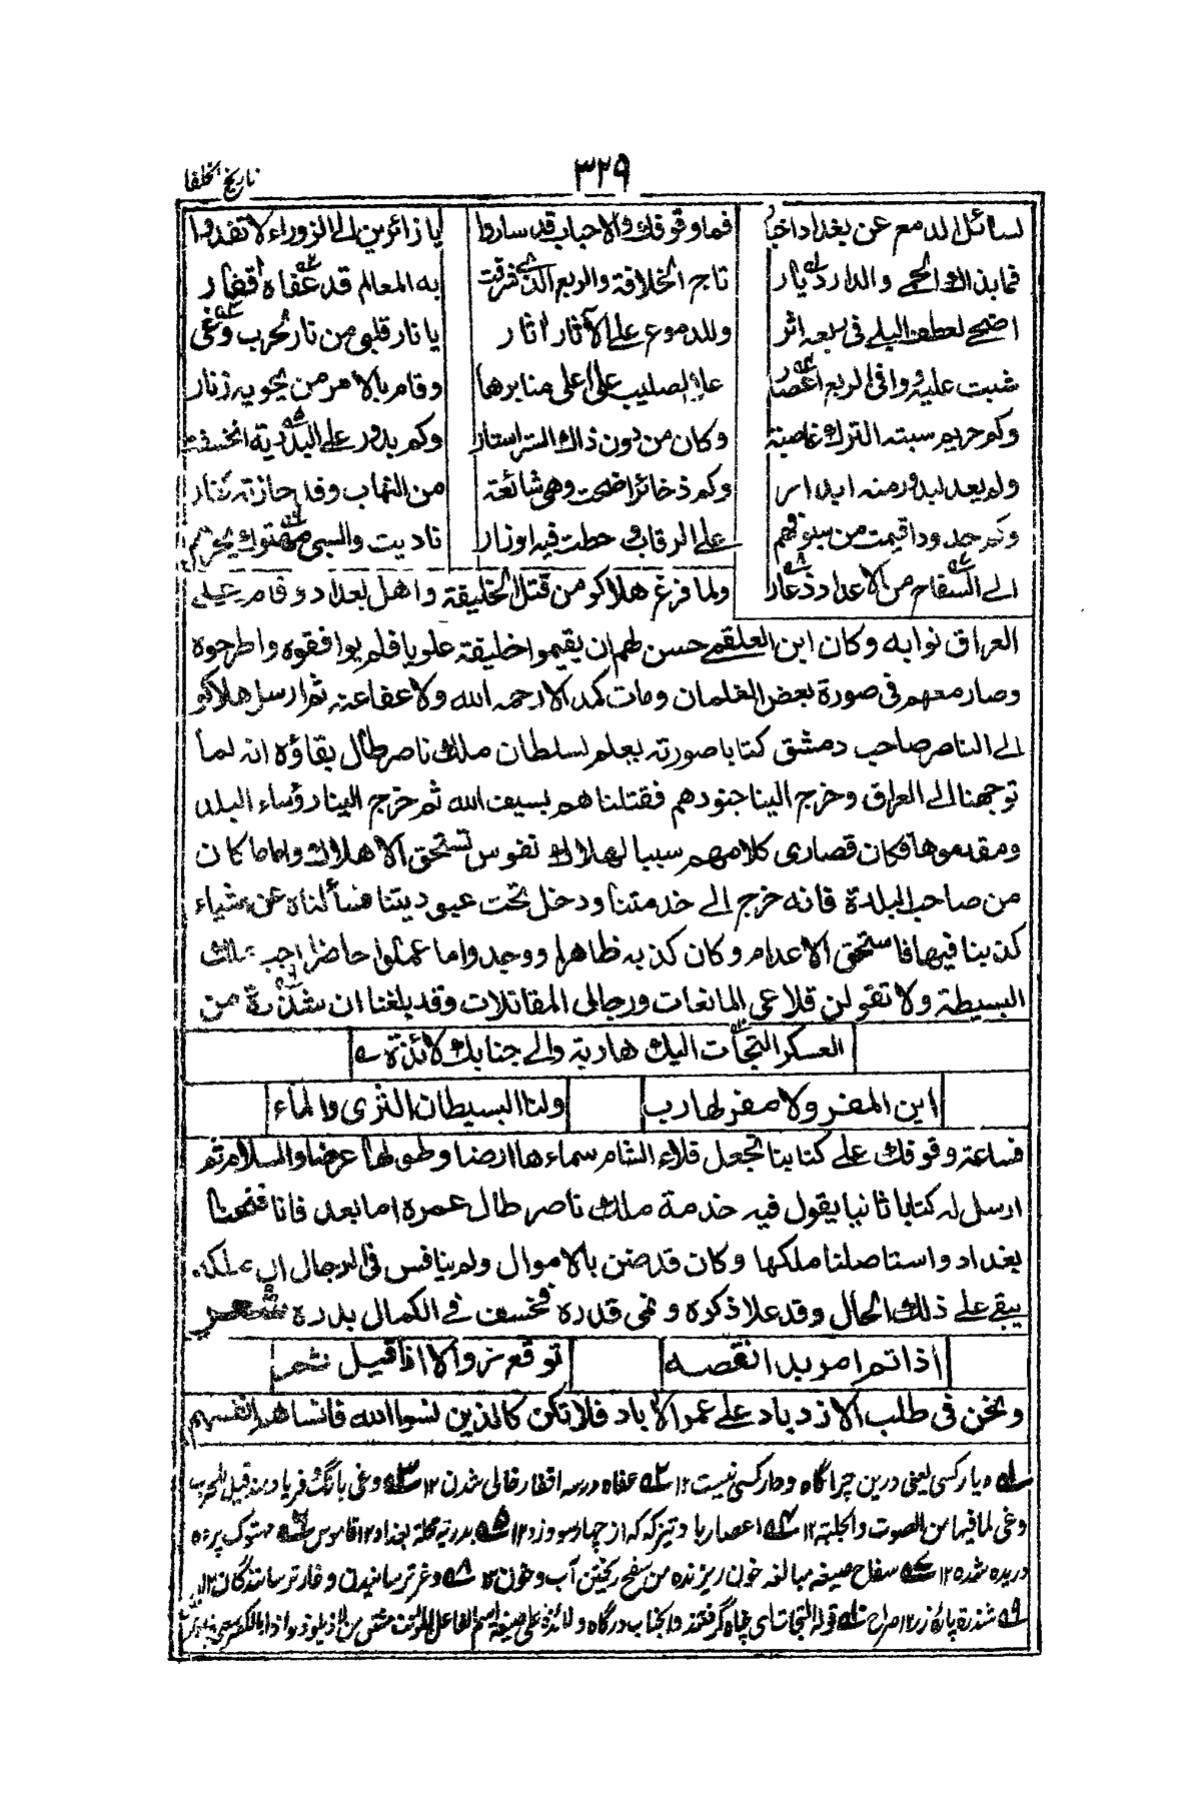 تاريخ الخلفا
٣٢٩
لسائل الدمع عن بغداد اخبار فما وقوفك والاحباب قد ساروا يا زائرين الى الزوراء لا تفدوا
فما بذاك الحمى والدار ديار تاج الخلافة والربع الذى شرفت به المعالم قد عفاه اقفار
اضحى لعطف البلى فى ربعه اثر وللدموع على الآثار اثار يا نار قلبى من نار لحرب وغى
شبت عليه ووافى الربع اعصار علا الصليب على اعلى منابرها وقام بالامر من يحويه زنار
وكم حريم سبته الترك غاصبة وكان من دون ذاك الستر استار وكم بدور على البدرية انخسفت
ولم يعد لبدور منه ابدار وكم ذخائر اضحت وهى شائعة من النهاب وقد حازته كفار
وكم حدود اقيمت من سيوفهم على الرقاب وحطت فيه اوزار ناديت والسبى مهتوك يجرهم
الى السفاح من الاعداء ذعار ولما فرغ هلاكو من قتل الخليفة واهل بغداد وقام على
العراق نوابه وكان ابن العلقمى حسن لهم ان يقيموا خليفة علويا فلم يوافقوه واطرحوه
وصار معهم فى صورة بعض الغلمان ومات كمدا لا رحمه الله ولا عفا عنه ثم ارسل هلاكو
الى الناصر صاحب دمشق كتابا صورته يعلم لسلطان ملك ناصر طال بقاؤه انه لما
توجهنا الى العراق وخرج الينا جنودهم فقتلناهم بسيف الله ثم خرج الينا رؤساء البلد
ومقدموها فكان قصارى كلامهم سببا لهلاك نفوس تستحق الاهلاك واما ما كان
من صاحب البلدة فانه خرج الى خدمتنا ودخل تحت عبوديتنا فسألناه عن اشياء
كذبنا فيها فاستحق الاعدام وكان كذبه ظاهرا ووجدوا ما عملوا حاضرا اجب ملك
البسيطة ولا تقولن قلاعى المانعات ورجالى المقاتلات وقد بلغنا ان شذرة من
العسكر التجأت اليك هاربة والى جنابك لائذة
اين المفر ولا مفر لهارب ولنا البسيطان الثرى والماء
فساعة وقوفك على كتابنا تجعل قلاع الشام سماءها ارضا وطولها عرضا والسلام ثم
ارسل له كتابا ثانيا يقول فيه خدمة ملك ناصر طال عمره اما بعد فانا فتحنا
بغداد واستاصلنا ملكها وكان قد ضن بالاموال ولم ينافس فى الرجال ان ملكه
يبقى على ذلك الحال وقد علا ذكره ونمى قدره فخسف فى الكمال بدره شعر
اذا تم امر بدا نقصه توقع زوالا اذا قيل تم
ونحن فى طلب الازدياد على ممر الاباد فلا تكن كالذين نسوا الله فانساهم انفسهم
له ديار كسى يعنى درين چراگاه ودار كسى نيست ١٢ عفاه درسه اقفار خالى شدن ١٢ وغى بانگ فرياد ومنه قيل للحرب
وغى لما فيها من الصوت والجلبة ١٢ اعصار باد تيز كه از چهار سو وزد ١٢ بدريه محلة بغداد ١٢ قاموس مهتوك پرده
دريده شده ١٢ سفاح صيغه مبالغه خون ريزنده من سفح ريختن آب وخون ١٢
شذرة پاره زر ١٢ صراح قوله التجأت اى پناه گرفتند والجناب درگاه